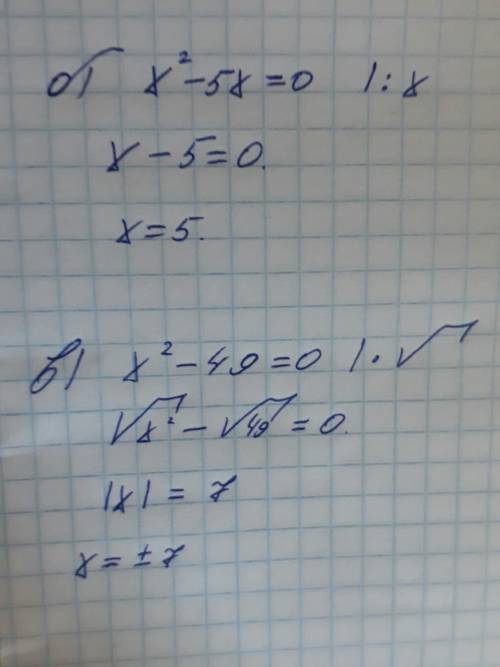 б) x² - 5x = 0 | : x
x - 5 = 0.
x = 5.
в) x² - 49 = 0 | · √
√x² - √49 = 0.
|x| = 7
x = ± 7